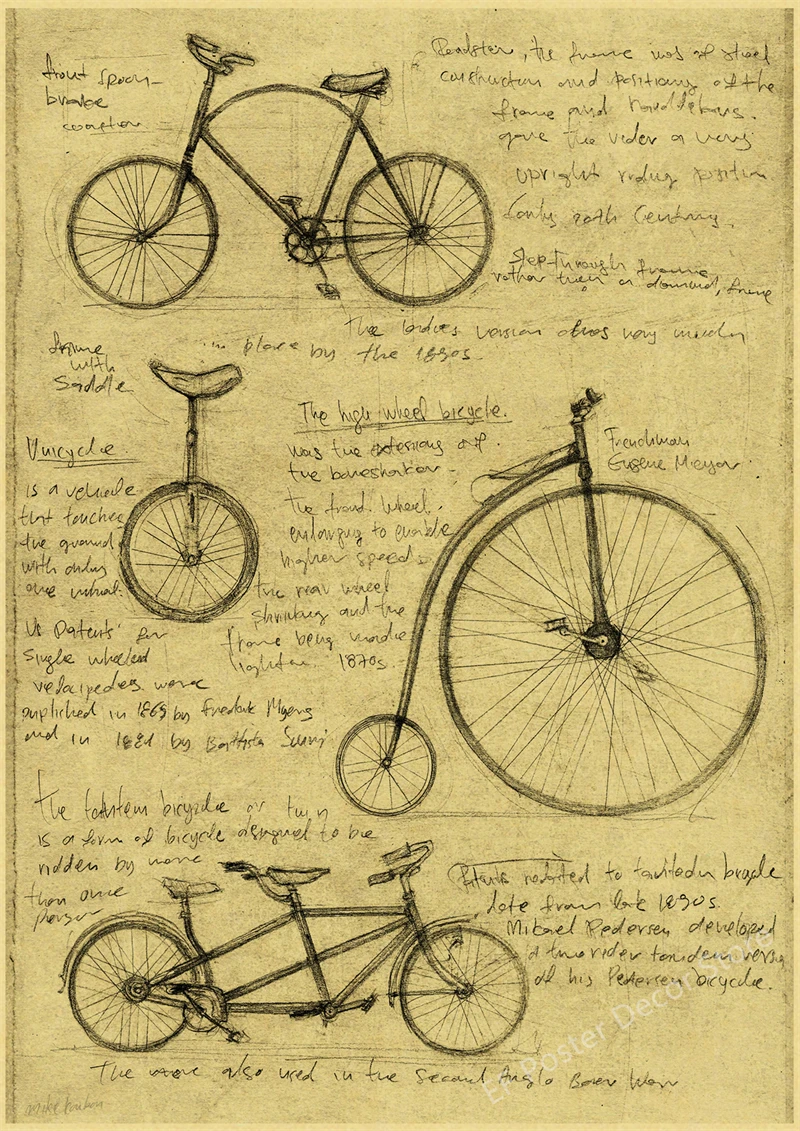 front spoon-
brake
Roadster, the frame was of steel
construction and positioning of the
frame and handlebars.
gave the rider a very
upright riding position.
Early 20th Century.
Step-through frame
rather than a diamond, frame
The ladies version
in place by the 1890s.
frame
with
Saddle
Unicycle
is a vehicle
that touches
the ground
with only
one wheel.
US Patents for
single wheeled
velocipedes were
published in 1869 by Fredrik Myers
and in 1881 by Battista Scuri
The high wheel bicycle.
was the extensions of
the boneshaker -
the front wheel.
enlarging to enable
higher speeds
the rear wheel
shrinking and the
frame being made
lighter. 1870s
Frenchman
Eugene Meyer
The tandem bicycle or twin
is a form of bicycle designed to be
ridden by more
than one
person
Patents related to tandem bicycle
date from late 1890s.
Mikael Pedersen developed
a two rider tandem version
of his Pedersen bicycle.
The were also used in the Second Anglo Boer War
Poster Decor Store